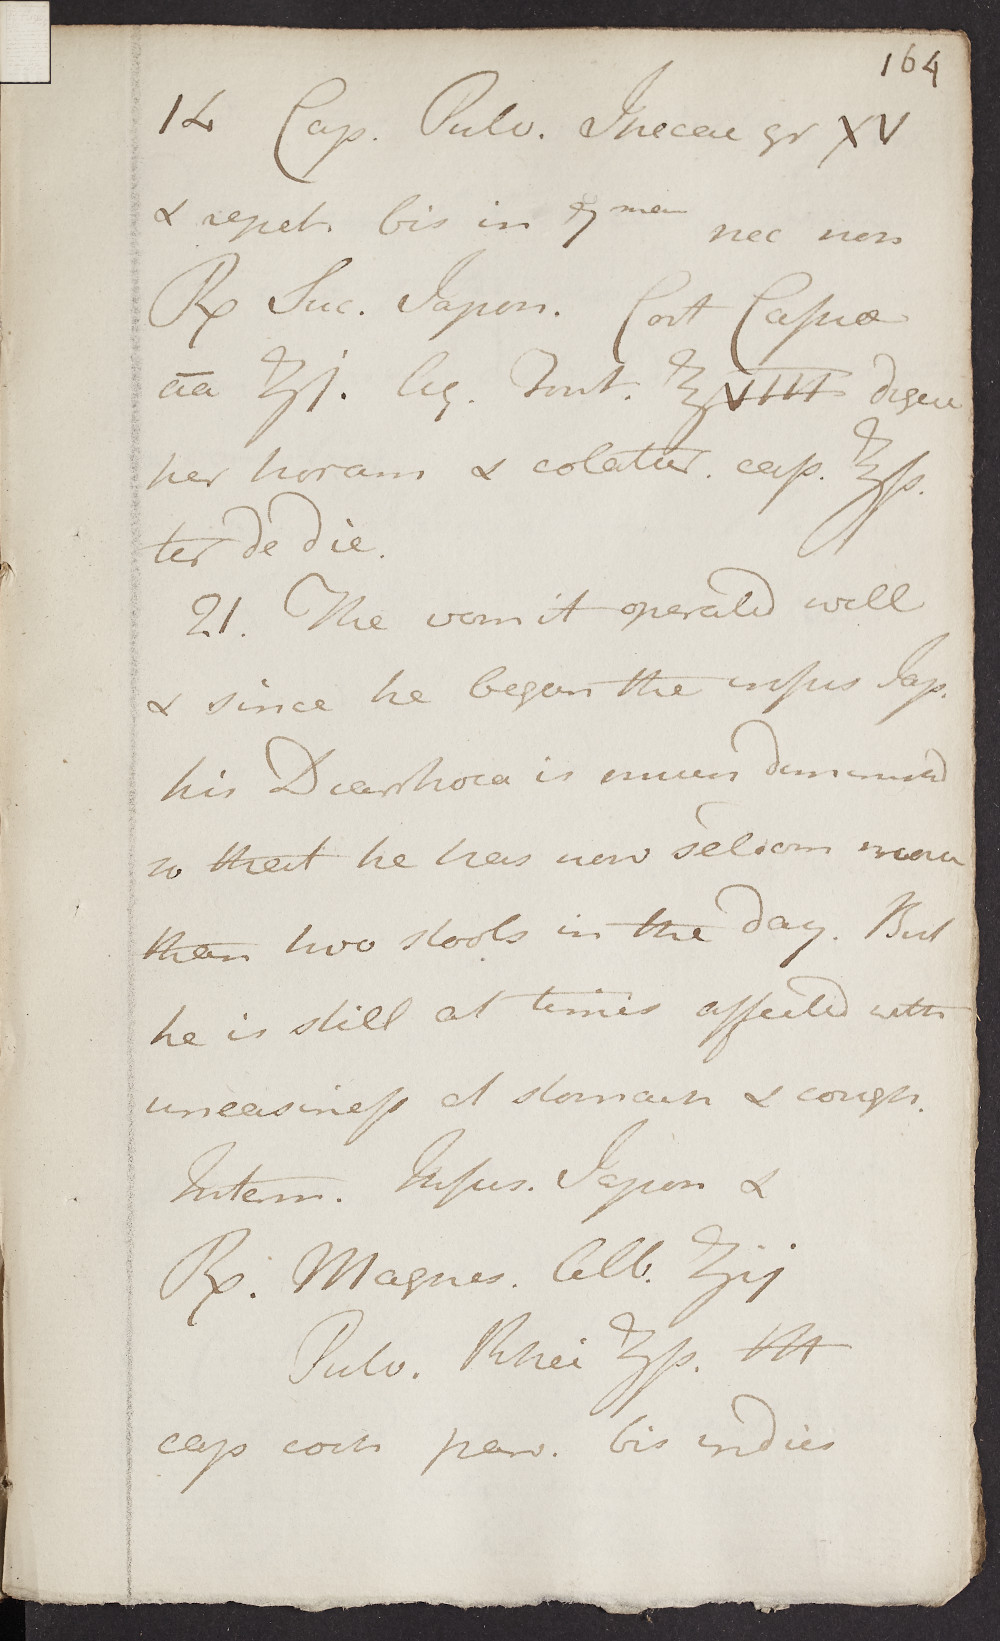 164
14 Cap. Pulv. Ipecac gr XV
& repet. bis in 7man nec non
Rx Suc. Japon. Cort Cassiæ
āā ʒj. Aq. Font. ℥VIII diger
per horam & colatur. cap. ℥ß.
ter de die.
21. The vomit operated well
& since he began the infus Jap.
his Diarrhoea is much diminished
so that he has now seldom more
than two stools in the day. But
he is still at times affected with
uneasiness at stomach & cough.
Interm. Infus. Japon &
Rx. Magnes. Alb. ʒij
Pulv. Rhei ʒß. M
cap coch parv. bis indies